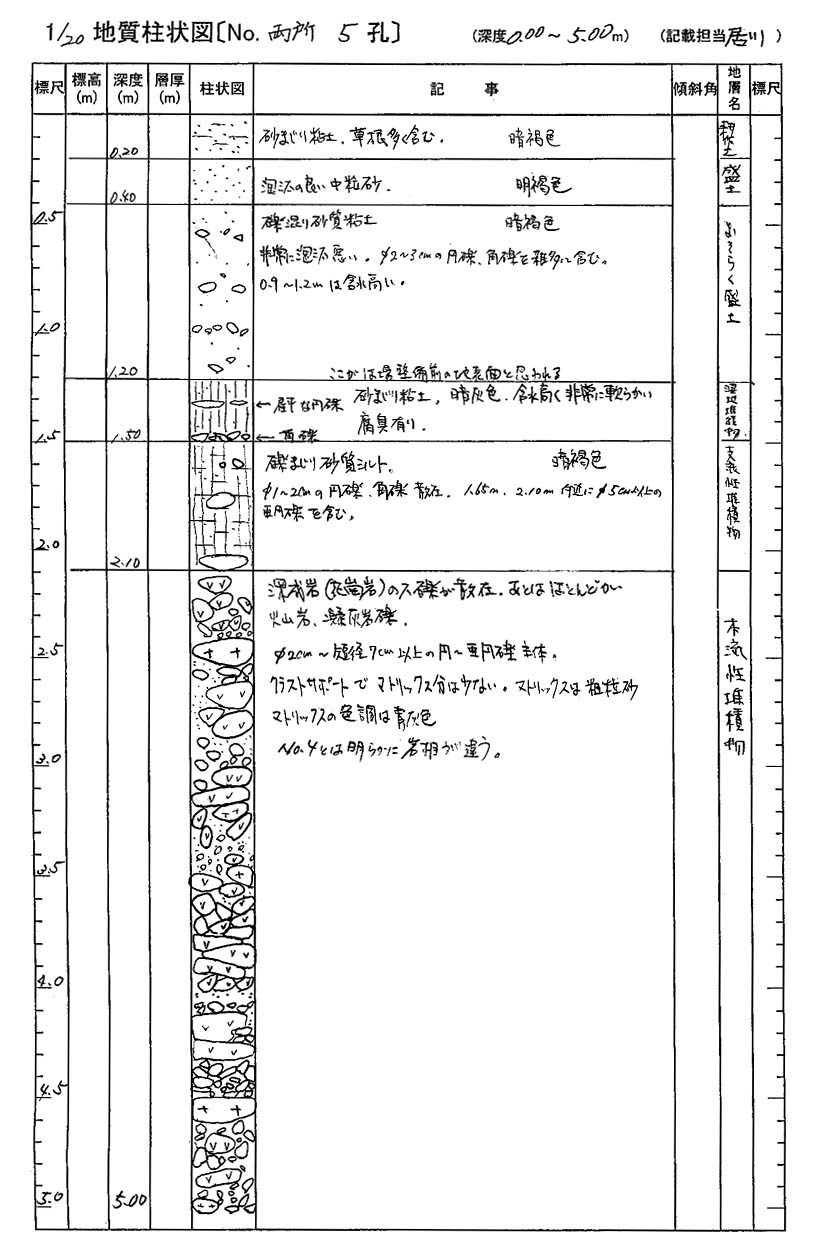 1/20 地質柱状図〔No. 両所 5 孔〕 (深度0.00～5.00m) (記載担当 居川)
標尺 標高(m) 深度(m) 層厚(m) 柱状図 記事 傾斜角 地層名 標尺
砂まじり粘土、草根多く含む。 暗褐色
0.20
盛土
淘汰の良い中粒砂. 明褐色
0.40
0.5
礫混り砂質粘土 暗褐色
非常に淘汰悪い。φ2～3cmの円礫、角礫を雑多に含む。
0.9～1.2mは含水高い。
おそらく盛土
1.0
1.20
ここがほ場整備前の地表面と思われる
←扁平な円礫 砂まじり粘土, 暗灰色. 含水高く非常に軟らかい
腐臭有り.
←角礫
1.5
1.50
礫まじり砂質シルト。 暗褐色
φ1～2cmの円礫、角礫散在. 1.65m、2.10m付近にφ5cm以上の
亜円礫を含む。
支流性堆積物
2.0
2.10
深成岩(花崗岩)の大礫が散在. あとはほとんどが
火山岩、凝灰岩礫.
φ2cm～短径7cm以上の円～亜円礫主体.
クラストサポートでマトリックス分は少ない。マトリックスは粗粒砂
マトリックスの色調は青灰色
No.4とは明らかに岩相が違う。
本流性堆積物
2.5
3.0
3.5
4.0
4.5
5.0
5.00